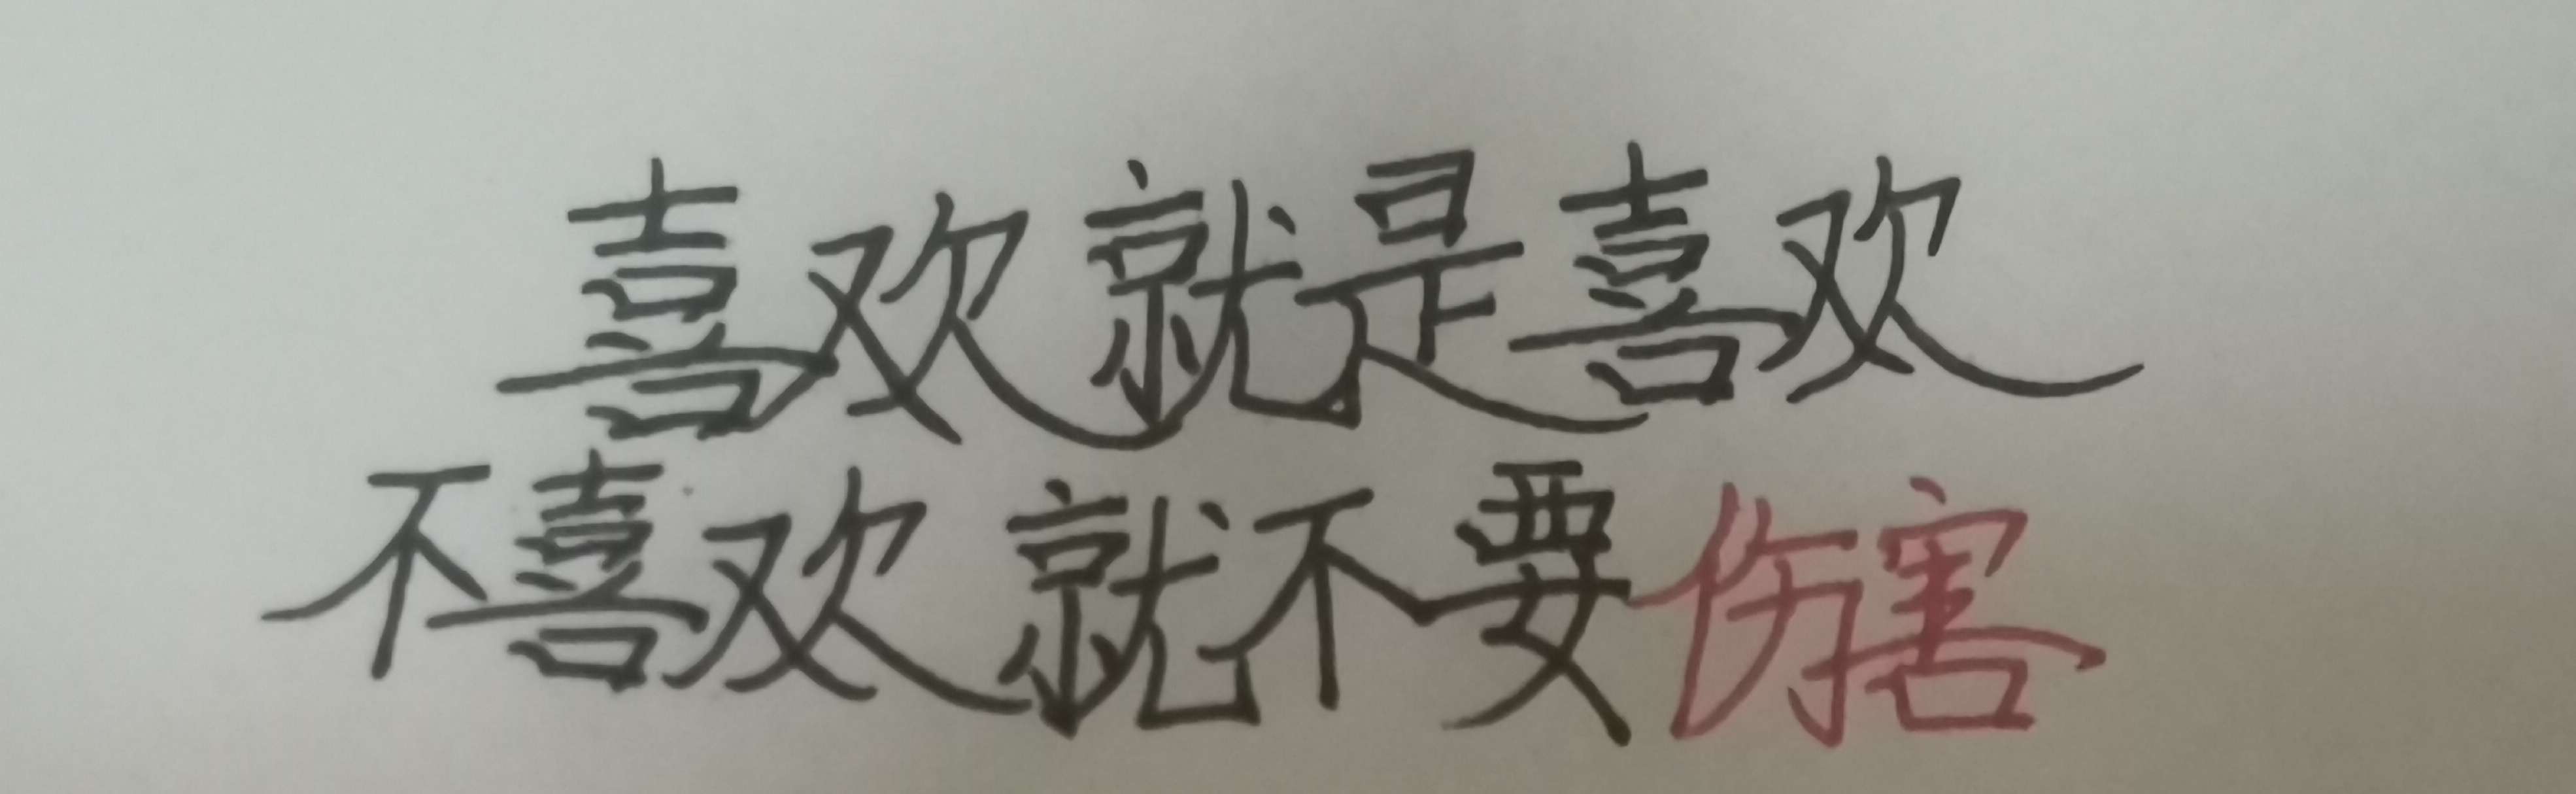 喜欢就是喜欢
不喜欢就不要伤害